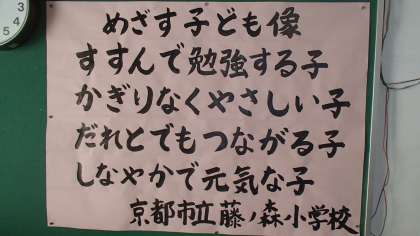 3
4
5
めざす子ども像
すすんで勉強する子
かぎりなくやさしい子
だれとでもつながる子
しなやかで元気な子
京都市立藤ノ森小学校